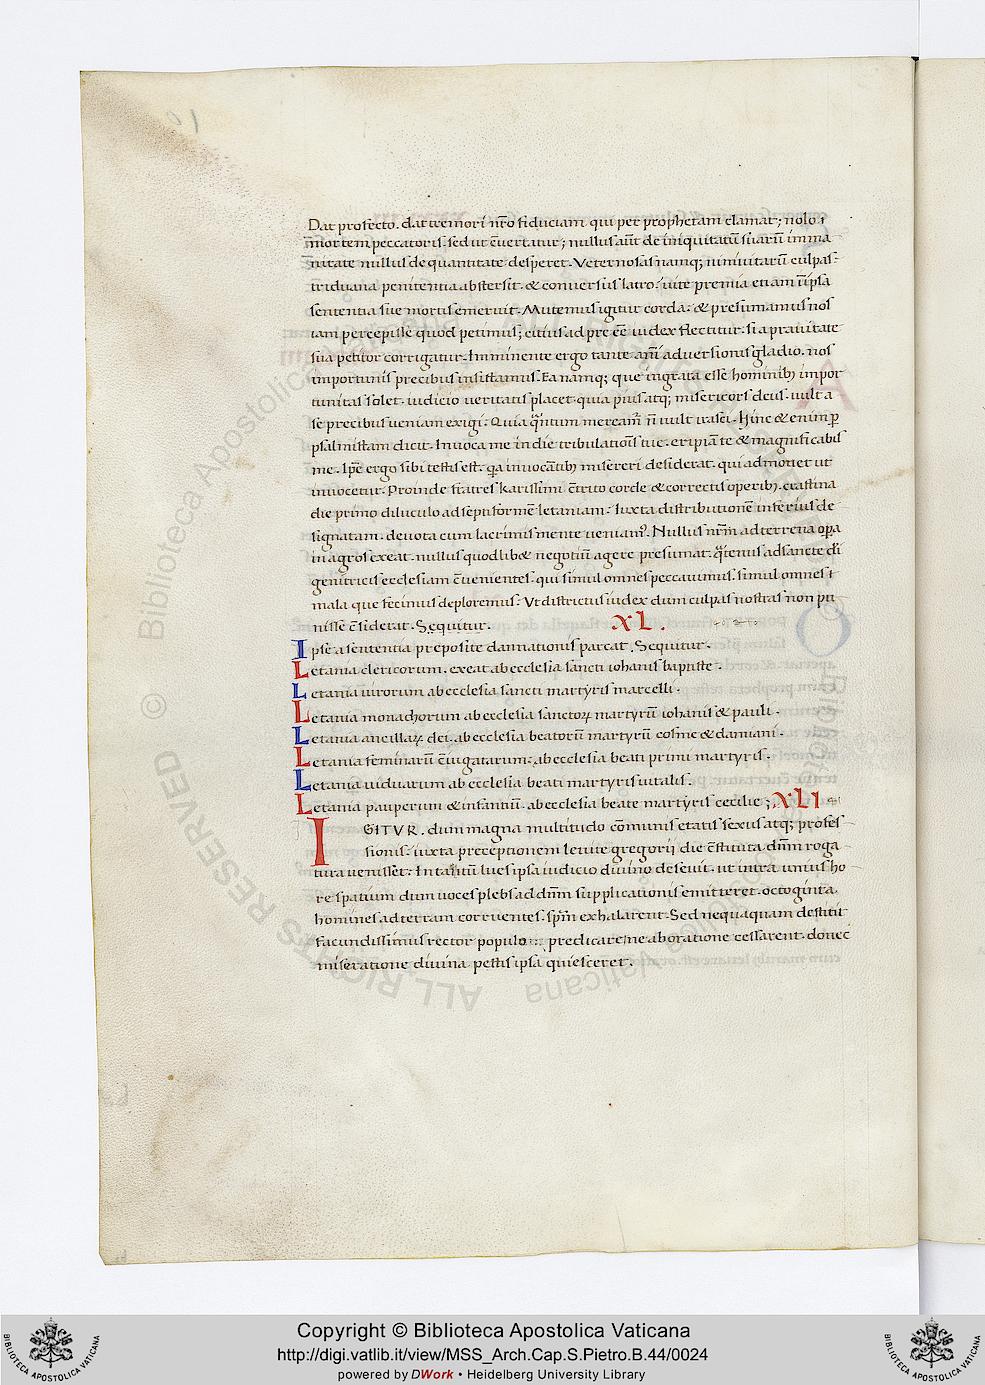 Dat profecto. dat tremori nr̄o fiduciam qui per prophetam clamat; nolo
mortem peccatoris. sed ut c̄uertatur; nullus aūt de iniquitatū suarū imma
nitate nullus de quantitate desperet. Veternosas namq; niniuitarū culpas
triduana penitentia abstersit. & conuersus latro. uite premia etiam in̄ ipsa
sententia sue mortis emeruit. Mutemus igitur corda. & presumamus nos
iam percepisse quod petimus; citius ad precē iudex flectitur. si a prauitate
sua petitor corrigatur. Imminente ergo tante aīaduersionis gladio. nos
importunis precibus insistamus. Ea namq; que ingrata esse hominib; impor
tunitas solet. iudicio ueritatis placet. quia pius atq; misericors deus. uult a
se precibus ueniam exigi. Quia q̄ntum meremr̄ n̄ uult irasci. Hinc & enim p
psalmistam dicit. Inuoca me in die tribulationis tue. eripiā te & magnificabis
me. Ip̄e ergo sibi testis est. q̄a inuocātib; misereri desiderat. qui admonet ut
inuocetur. Proinde fratres karissimi c̄trito corde & correctis operib; crastina
die primo diluculo ad septiformē letaniam. Iuxta distributionē inferius de
signatam. deuota cum lacrimis mente ueniam⁹. Nullus nr̄m ad terrena opa
in agros exeat. nullus quodlib& negotiū agere presumat. q̄tenus ad sancte d̄i
genitricis ecclesiam c̄uenientes. qui simul omnes peccauimus. simul omnes
mala que fecimus deploremus. Vt districtus iudex dum culpas nostras non pu
nisse c̄siderat. Sequitur. XL.
Ipse a sententia preposite damnationis parcat. Sequitur.
Letania clericorum. exeat ab ecclesia sancti iohanis baptiste.
Letania uirorum ab ecclesia sancti martyris marcelli.
Letania monachorum ab ecclesia sanctoꝝ martyrū iohanis & pauli.
Letania ancillaꝝ dei. ab ecclesia beatorū martyrū cosme & damiani.
Letania feminarū c̄iugatarum. ab ecclesia beati primi martyris.
Letania uiduarum ab ecclesia beati martyris uitalis.
Letania pauperum & infantiū. ab ecclesia beate martyris cecilie; XLI
IGITVR. dum magna multitudo c̄omunis etatis sexus atq; profes
sionis. iuxta preceptionem leuite gregorii die c̄stituta dn̄m roga
tura uenisset. In tantum lues ipsa iudicio diuino deseuit. ut intra unius ho
re spatium dum uoces plebs ad dn̄m supplicationis emitteret. octoginta
homines ad terram corruentes. spm̄ exhalarent. Sed nequaquam destitit
facundissimus rector populo predicare ne ab oratione cessarent. donec
miseratione diuina pestis ipsa quiesceret.
© Biblioteca Apostolica Vaticana
ALL RIGHTS RESERVED
Copyright © Biblioteca Apostolica Vaticana
http://digi.vatlib.it/view/MSS_Arch.Cap.S.Pietro.B.44/0024
powered by DWork • Heidelberg University Library
BIBLIOTECA APOSTOLICA VATICANA
BIBLIOTECA APOSTOLICA VATICANA